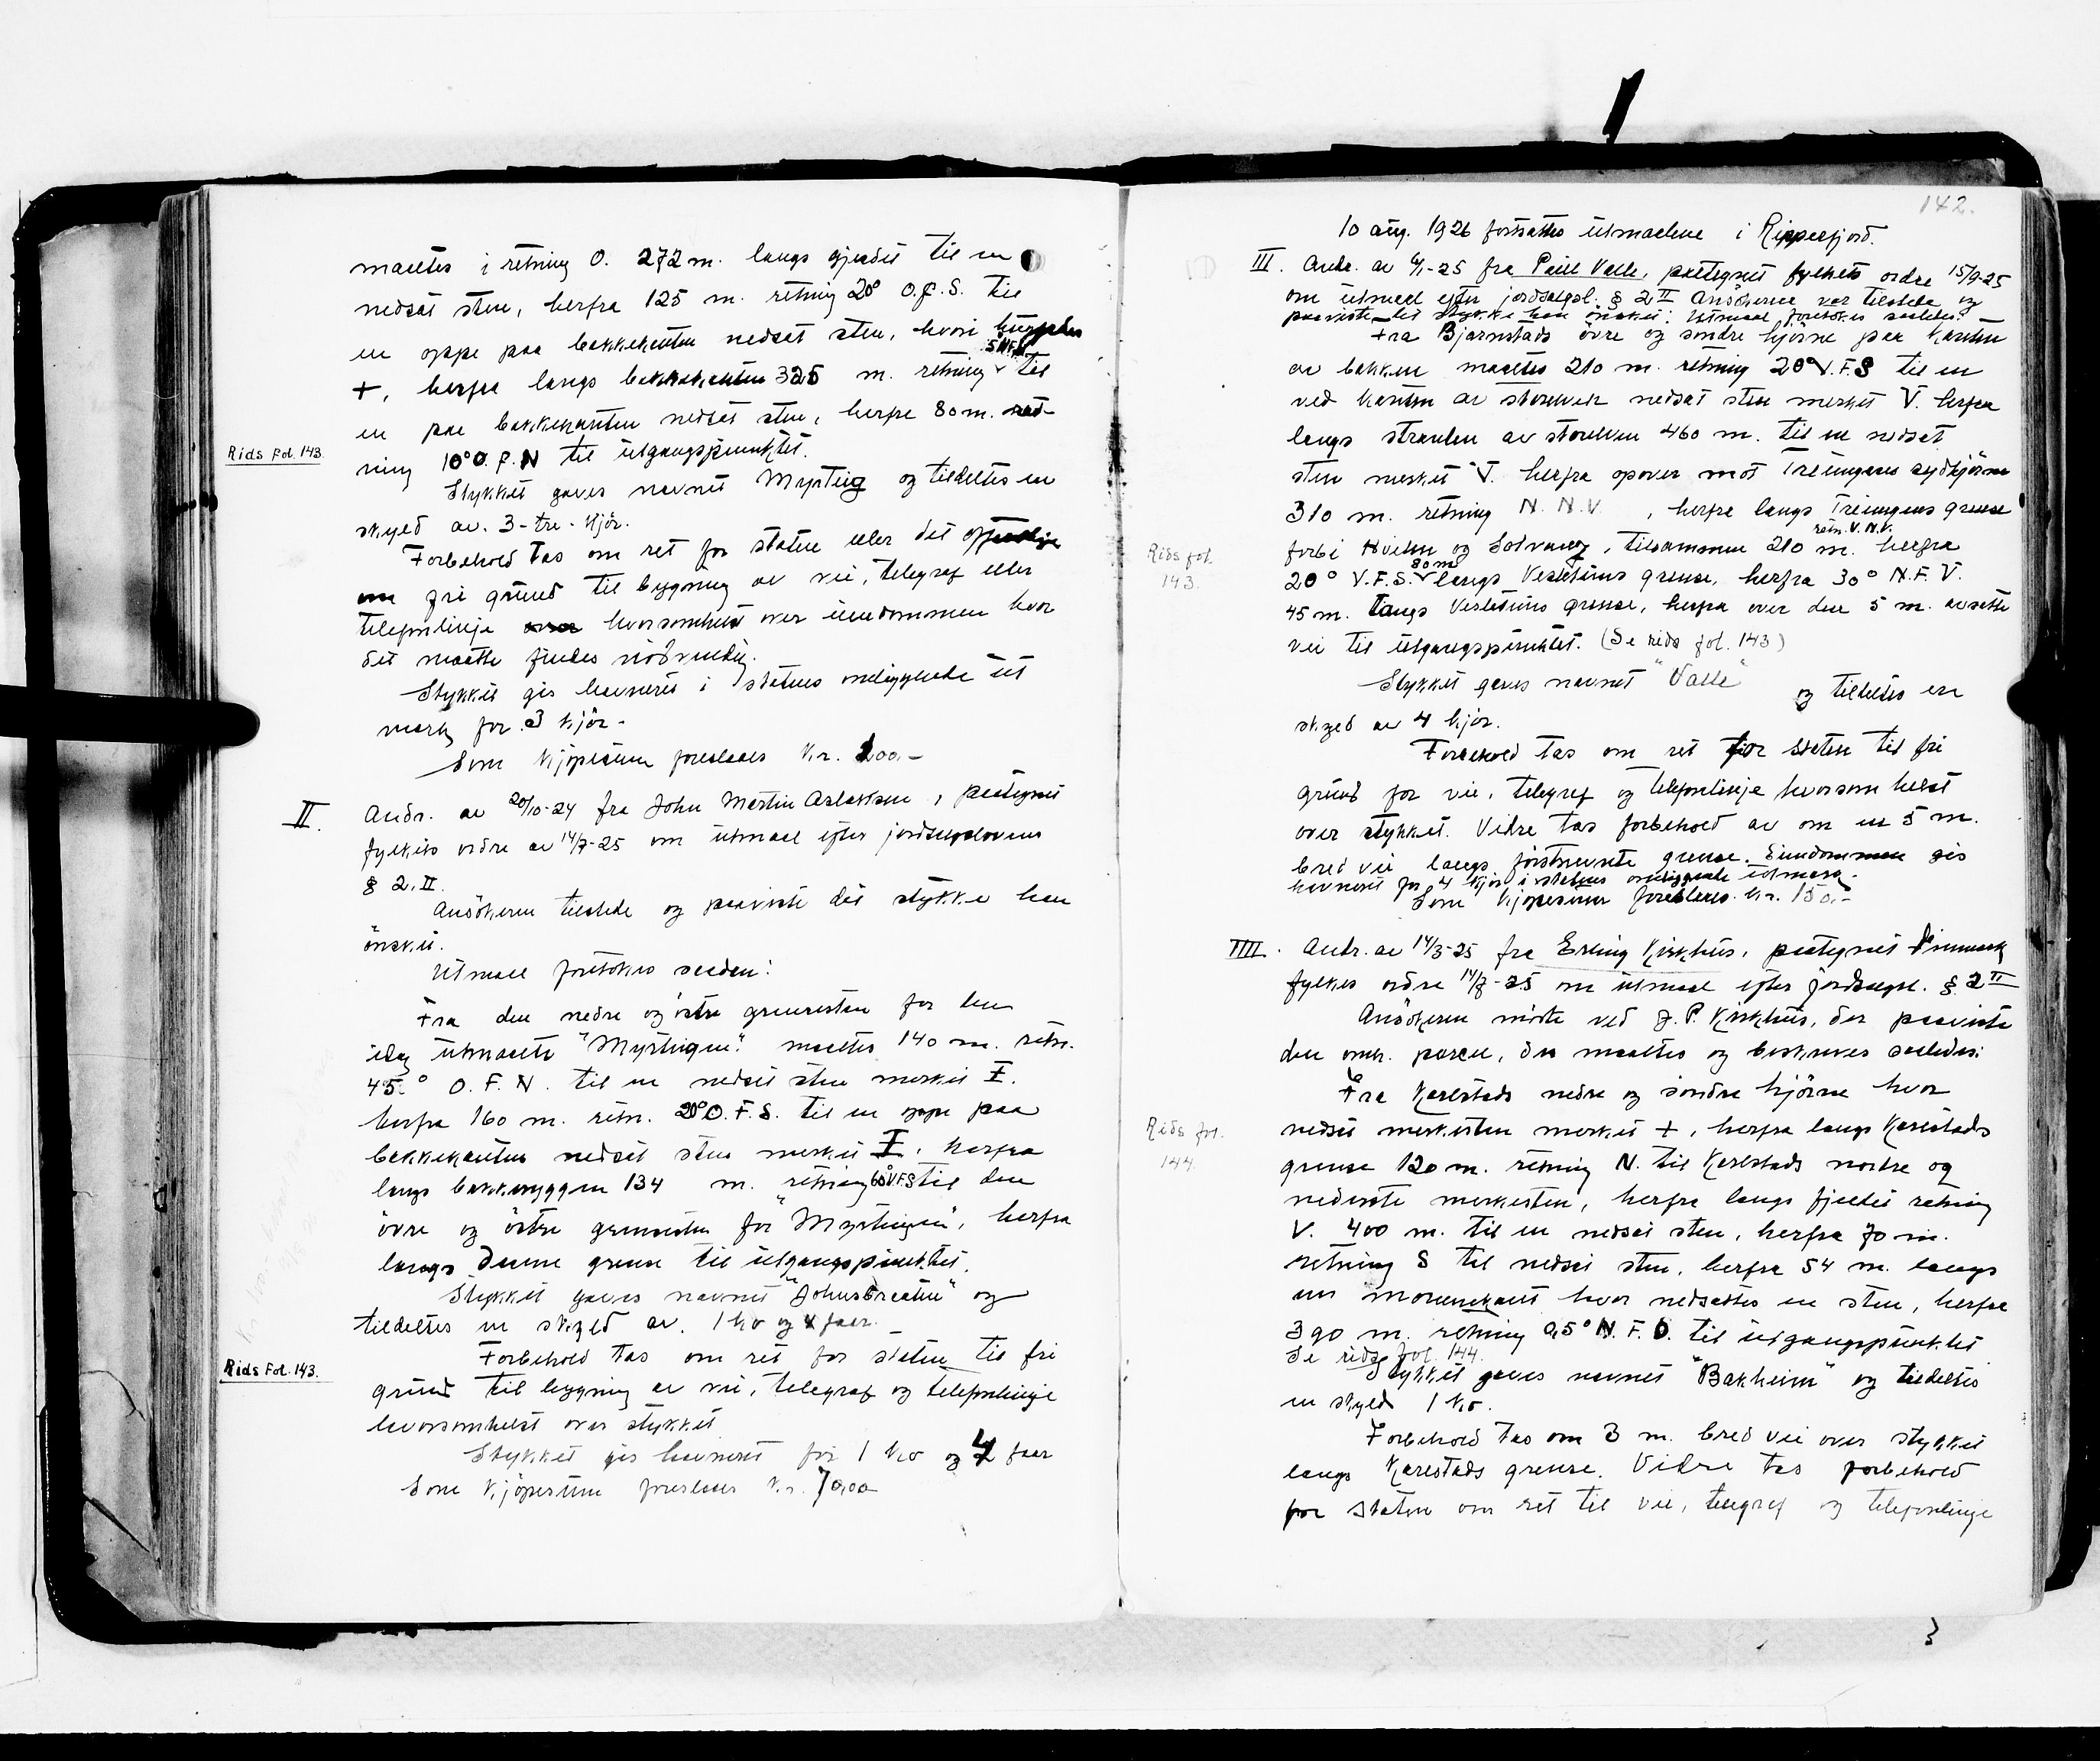 maaltes i retning O. 272 m. langs gjerdet til en
nedsat sten, herfra 125 m. retning 20° O.f.S. til
en oppe paa bakkekanten nedsat sten, hvori
+, herfra langs bakkekanten 325 m. retning til
en paa bakkekanten nedsat sten, herfra 80 m. ret-
ning 10° O.f.N til utgangspunktet.
Rids Fol. 143.
Stykket gaves navnet Myrteig og tildeltes en
skyld av. 3-tre-kjör.
Forbehold tas om ret for staten eller det offentlige
om fri grund til bygning av vei, telegraf eller
telefonlinje hvorsomhelst over eiendommen hvor
det maatte findes nödvendig.
Stykket gis havneret i statens omliggende ut
mark for 3 kjör-
Som kjöpesum foreslaaes kr. 200.-
II. Andr. av 20/10-24 fra John Martin Aslaksen, paategnet
fylkets ordre av 14/7-25 om utmaal efter jordsalgslovens
§ 2. II.
Ansökeren tilstede og paaviste det stykke han
önsket.
Utmaal foretokes saadan:
Fra den nedre og östre grensesten for den
idag utmaalte "Myrteigen" maaltes 140 m. retn.
45° O.F.N. til en nedsat sten merket I.
herfra 160 m. retn. 20° O.F.S. til en oppe paa
bakkekanten nedsat sten merket I, herfra
langs bakkeryggen 134 m. retning 60° V.F.S til den
övre og östre grensesten for "Myrteigen", herfra
langs denne grense til utgangspunktet.
Stykket gaves navnet "Johnsbraaten" og
tildeltes en skyld av. 1 ko og 4 faar.
Rids Fol. 143.
Forbehold tas om ret for staten til fri
grund til bygning av vei, telegraf og telefonlinje
hvorsomhelst over stykket
Stykket gis havneret for 1 ko og 4 faar
Som kjöpesum foreslaaes kr. 70,00
142.
10 aug. 1926 fortsattes utmaalene i Repparfjord.
III. Andr. av -25 fra Paul Valle, paategnet fylkets ordre 15/9-25
om utmaal efter jordsalgsl. § 2 II Ansökeren var tilstede og
paaviste det stykke han önsket. Utmaal foretokes saaledes:
Fra Bjarnstads övre og söndre hjörne paa kanten
av bakken maaltes 210 m. retning 20° V.F.S til en
ved kanten av storelven nedsat sten merket V. herfra
langs stranden av storelven 460 m. til en nedsat
sten merket V. herfra opover mot Treungens sydhjörne
310 m. retning N.N.V. , herfra langs Treungens grense
retn. V.N.V.
forbi Hvilen og Solvang, tilsammen 210 m. herfra
80 m
20° V.F.S. langs Vesletuns grense, herfra 30° N.F.V.
Rids fol.
143.
45 m. langs Vesletuns grense, herfra over den 5 m. avsatte
vei til utgangspunktet. (Se rids fol. 143)
Stykket gaves navnet "Valle" og tildeltes en
skyld av 4 kjör.
Forbehold tas om ret for staten til fri
grund for vei, telegraf og telefonlinje hvorsom helst
over stykket. Videre tas forbehold av om en 5 m.
bred vei langs förstnevnte grense. Eiendommen gis
havneret for 4 kjör i statens omliggende utmark.
Som kjöpesum foreslaaes kr. 150.-
IIII. Andr. av 14/3-25 fra Erling Kirkhus, paategnet Finnmark
fylkes ordre 14/7-25 om utmaal efter jordsalgsl. § 2 II
Ansökeren mötte ved J. P. Kirkhus, der paaviste
den omh. parcel, der maaltes og beskrives saaledes:
Fra Karlstads nedre og söndre hjörne hvor
nedsat merkesten merket +, herfra langs Karlstads
Rids fol.
144.
grense 120 m. retning N. til Karlstads nordre og
nederste merkesten, herfra langs fjeldet retning
V. 400 m. til en nedsat sten, herfra 70 m.
retning S til nedsat sten, herfra 54 m. langs
en morænekant hvor nedsattes en sten, herfra
390 m. retning 25° N.F.O. til utgangspunktet
Se rids fol. 144.
Stykket gaves navnet "Bakheim" og tildeltes
en skyld 1 ko.
Forbehold tas om 3 m. bred vei over stykket
langs Karlstads grense. Videre tas forbehold
for staten om ret til vei, telegraf og telefonlinje